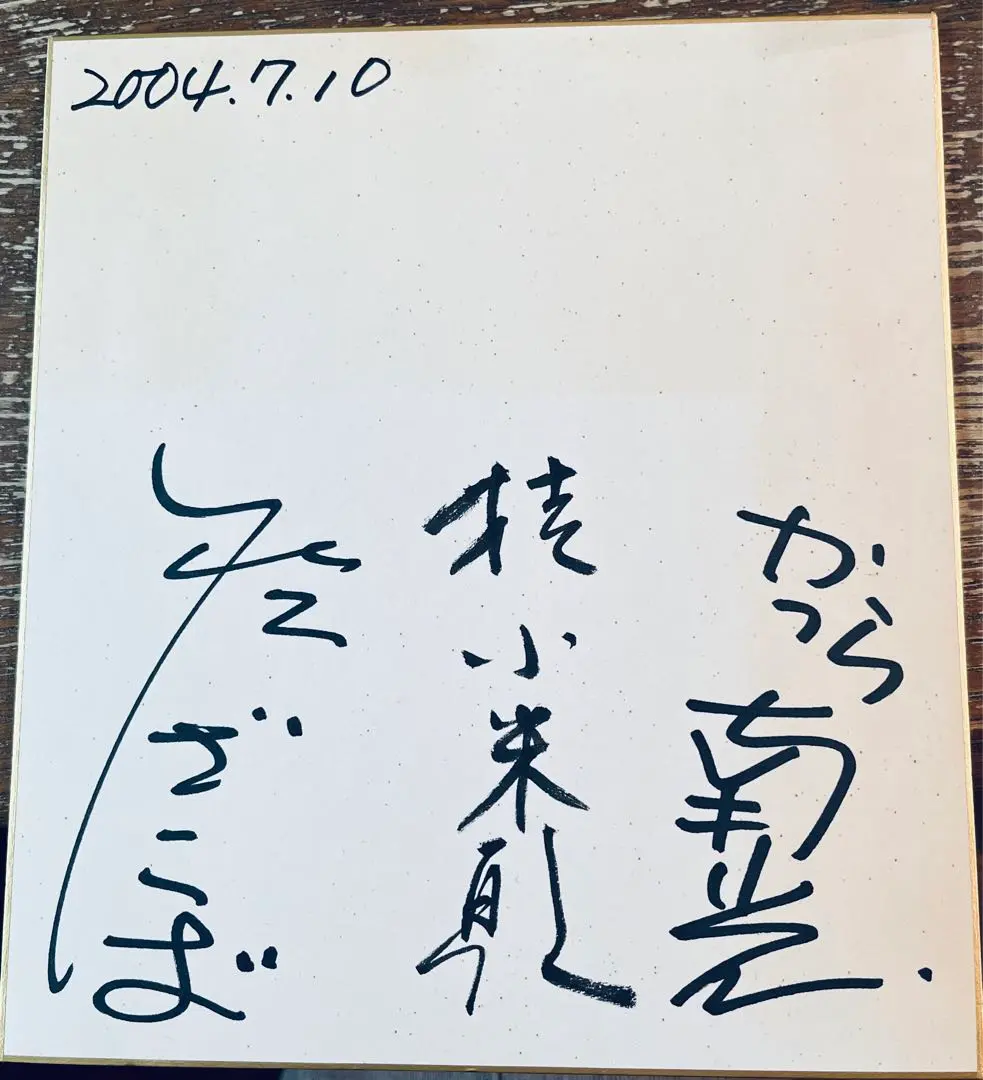 2004.7.10
かつら南光
桂小米朝
桂ざこば